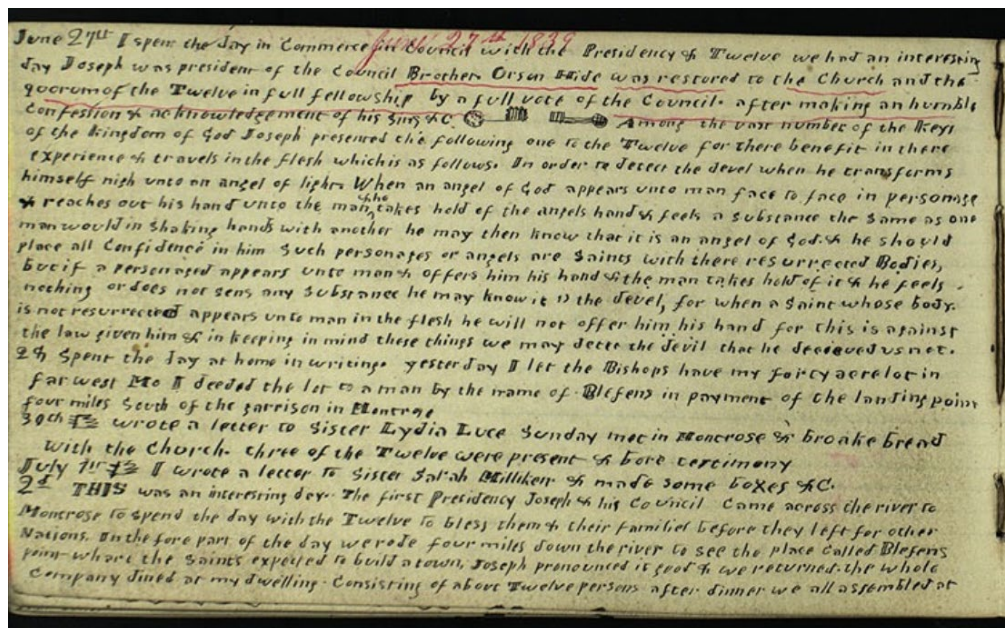 June 27th 1839
June 27th I spent the day in Commerce in Council with the Presidency & Twelve we had an interesting
day Joseph was president of the Council Brother Orson Hide was restored to the Church and the
quorum of the Twelve in full fellowship by a full vote of the Council. after making an humble
Confession & acknowledgement of his sins &C. Among the vast number of the Keys
of the Kingdom of God Joseph presented the following one to the Twelve for there benefit in there
experience & travels in the flesh which is as follows. In order to detect the devel when he transforms
himself nigh unto an angel of light. When an angel of God appears unto man face to face in personage
& reaches out his hand unto the man & he takes hold of the angels hand & feels a substance the Same as one
man would in Shaking hands with another he may then know that it is an angel of God. & he should
place all Confidence in him Such personages or angels are Saints with there resurrected Bodies,
but if a personage appears unto man & offers him his hand & the man takes hold of it & he feels
nothing or does not sens any Substance he may know it is the devel, for when a Saint whose body
is not resurrected appears unto man in the flesh he will not offer him his hand for this is against
the law given him & in keeping in mind these things we may detec the devil that he decieved us not.
28 Spent the day at home in writing. yesterday I let the Bishops have my forty acre lot in
far west Mo I deeded the lot to a man by the name of Blefens in payment of the landing point
four miles South of the garrison in Montrose
30th wrote a letter to Sister Lydia Luce Sunday met in Montrose & broake bread
with the Church. three of the Twelve were present & bore testimony
July 1st I wrote a letter to Sister Sarah Milliken & made some boxes &C.
2d THIS was an interesting day. The first Presidency Joseph & his Council Came across the river to
Montrose to spend the day with the Twelve to bless them & their families before they left for other
Nations. In the fore part of the day we rode four miles down the river to see the place Called Blefens
point whare the Saints expected to build a town, Joseph pronounced it good & we returned. the whole
Company dined at my dwelling. Consisting of about Twelve persons after dinner we all assembled at